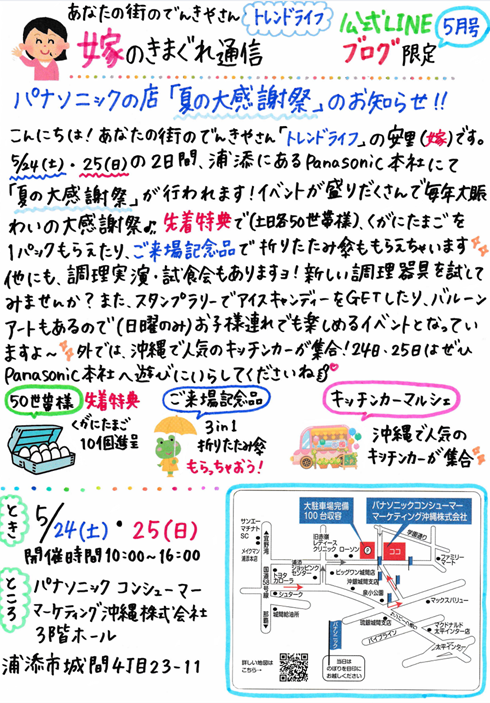 あなたの街のでんきやさん トレンドライフ
嫁のきまぐれ通信
公式LINE
ブログ限定
5月号
パナソニックの店「夏の大感謝祭」のお知らせ!!
こんにちは!あなたの街のでんきやさん「トレンドライフ」の安里(嫁)です。
5/24(土)・25(日)の2日間、浦添にあるPanasonic本社にて
「夏の大感謝祭」が行われます!イベントが盛りだくさんで毎年大賑
わいの大感謝祭♪先着特典で(土日各50世帯様)、くがにたまごを
1パックもらえたり、ご来場記念品で折りたたみ傘ももらえちゃいます
他にも、調理実演・試食会もありますョ!新しい調理器具を試して
みませんか?また、スタンプラリーでアイスキャンディーをGETしたり、バルーン
アートもあるので(日曜のみ)お子様連れでも楽しめるイベントとなってい
ますよ~外では、沖縄で人気のキッチンカーが集合!24日・25日はぜひ
Panasonic本社へ遊びにいらしてくださいね
50世帯様 先着特典
くがにたまご
10個進呈
ご来場記念品
3in1
折りたたみ傘
もらっちゃおう!
キッチンカーマルシェ
沖縄で人気の
キッチンカーが集合
とき
5/24(土)・25(日)
開催時間10:00~16:00
ところ
パナソニック コンシューマー
マーケティング沖縄株式会社
3階ホール
浦添市城間4丁目23-11
大駐車場完備
100台収容
パナソニックコンシューマー
マーケティング沖縄株式会社
P
ココ
学園通り
サンエー
マチナト
SC
メイクマン
浦添本店
至宜野湾
国道58号線
那覇
旧赤嶺
レディース
クリニック
ローソン
浦添
ショッピング
センター
トヨタ
カローラ
シュターク
城間給油所
ビッグワン城間店
沖銀城間支店
泉小公園
琉銀城間支店
パイプライン
ファミリー
マート
マックスバリュー
マクドナルド
太平インター店
太平インター
パナソニック
詳しい地図は
こちら→
当日は
のぼりを目印に
お越しください